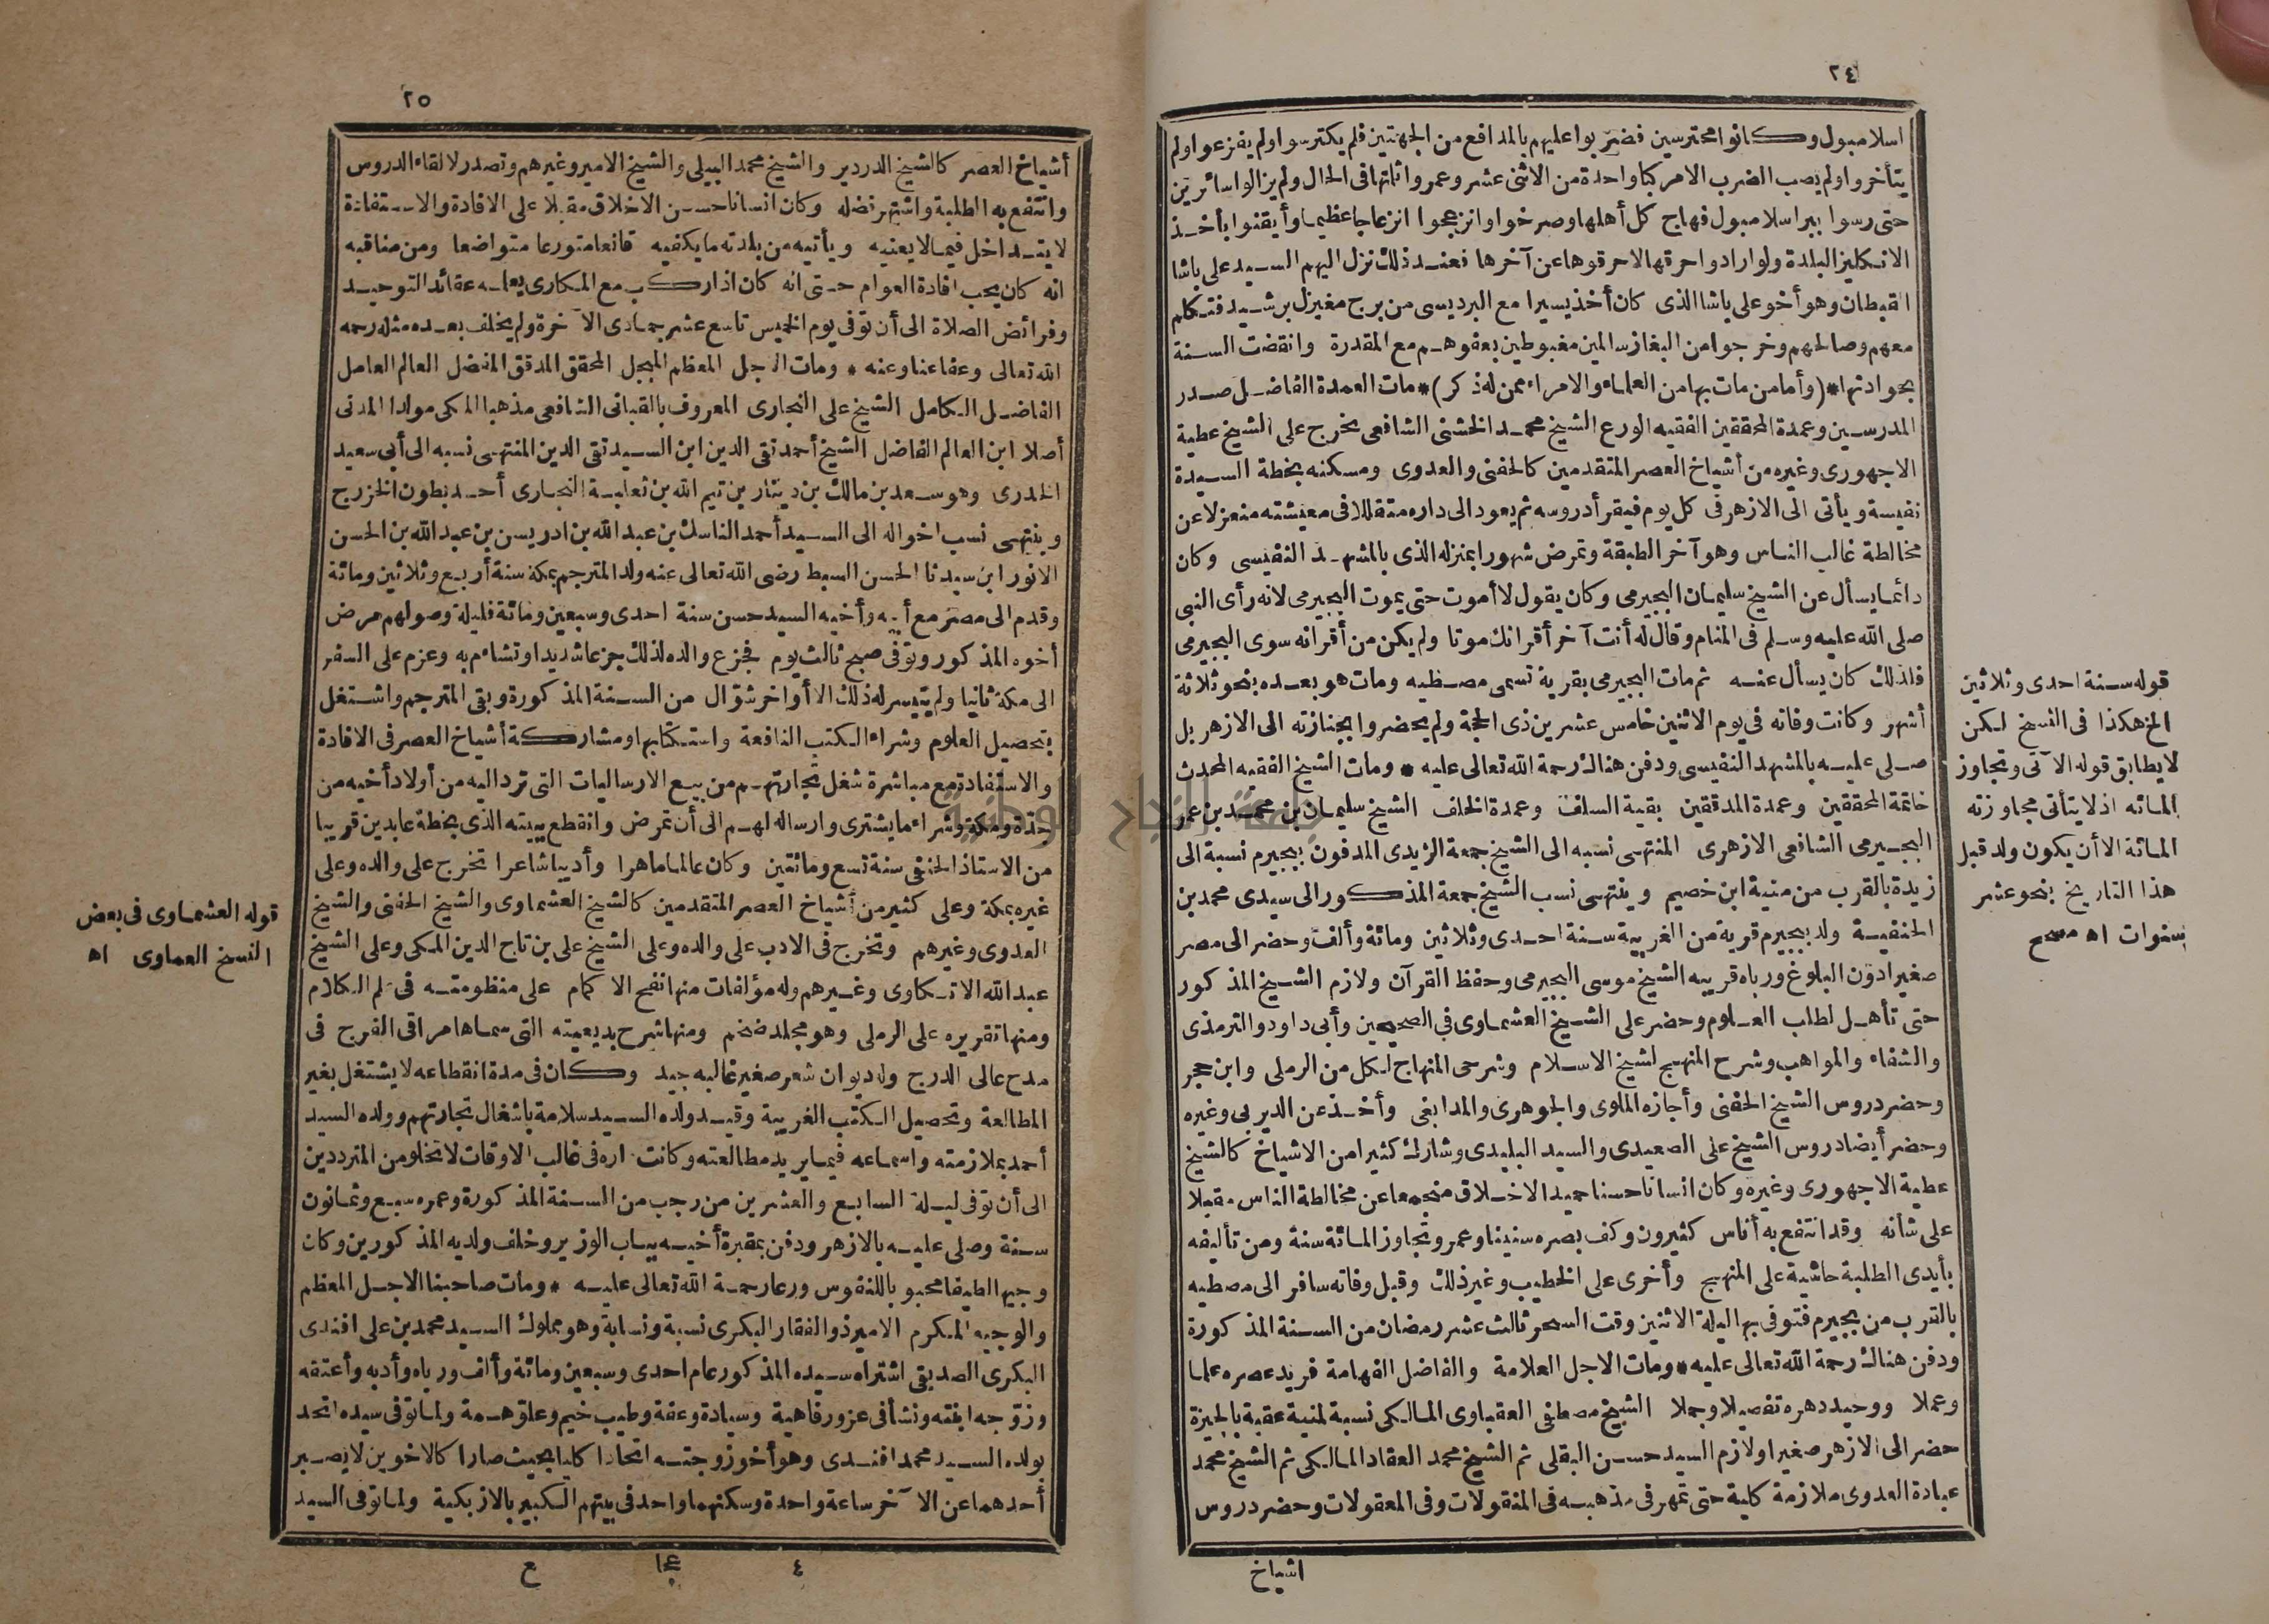 ٢٤
اسلامبول وكانوا محترسين فضربوا عليهم بالمدافع من الجهتين فلم يكترسوا ولم يفزعوا ولم
يتأخروا ولم يصب الضرب الا مركبا واحدة من الاثنى عشر وعمروا ثلمتها فى الحال ولم يزالوا سائرين
حتى رسوا ببر اسلامبول فهاج كل أهلها وصرخوا وانزعجوا انزعاجا عظيما وأيقنوا بأخذ
الانكليز البلدة ولو ارادوا حرقها لاحرقوها عن آخرها فعند ذلك نزل اليهم السيد على باشا
القبطان وهو أخو على باشا الذى كان أخذ يسيرا مع البرديسى من برج مغيزل برشيد فتكلم
معهم وصالحهم وخرجوا من البغاز سالمين مغبوطين بعفوهم مع المقدرة وانقضت السنة
بحوادثها * (وأما من مات بها من العلماء والامراء ممن له ذكر) * مات العمدة الفاضل صدر
المدرسين وعمدة المحققين الفقيه الورع الشيخ محمد الخشنى الشافعى تخرج على الشيخ عطية
الاجهورى وغيره من أشياخ العصر المتقدمين كالحفنى والعدوى ومسكنه بخطة السيدة
نفيسة ويأتى الى الازهر فى كل يوم فيقرأ دروسه ثم يعود الى داره متقللا فى معيشته منعزلا عن
مخالطة غالب الناس وهو آخر الطبقة وتمرض شهورا بمنزله الذى بالمشهد النفيسى وكان
دائما يسأل عن الشيخ سليمان البجيرمى وكان يقول لا أموت حتى يموت البجيرمى لانه رأى النبى
صلى الله عليه وسلم فى المنام وقال له أنت آخر أقرانك موتا ولم يكن من أقرانه سوى البجيرمى
فلذلك كان يسأل عنه ثم مات البجيرمى بقرية تسمى مصطيه ومات هو بعده بنحو ثلاثة
أشهر وكانت وفاته فى يوم الاثنين خامس عشرين ذى الحجة ولم يحضروا بجنازته الى الازهر بل
صلى عليه بالمشهد النفيسى ودفن هناك رحمة الله تعالى عليه * ومات الشيخ الفقيه المحدث
خاتمة المحققين وعمدة المدققين بقية السلف وعمدة الخلف الشيخ سليمان بن محمد بن عمر
البجيرمى الشافعى الازهرى المنتهى نسبه الى الشيخ جمعة الزيدى المدفون ببجيرم نسبة الى
زيدة بالقرب من منية ابن خصيم وينتهى نسب الشيخ جمعة المذكور الى سيدى محمد بن
الحنفية ولد ببجيرم قرية من الغربية سنة احدى وثلاثين ومائة وألف وحضر الى مصر
صغيرا دون البلوغ ورباه قريبه الشيخ موسى البجيرمى وحفظ القرآن ولازم الشيخ المذكور
حتى تأهل لطلب العلوم وحضر على الشيخ العشماوى فى الصحيحين وأبى داود والترمذى
والشفاء والمواهب وشرح المنهج لشيخ الاسلام وشرحى المنهاج لكل من الرملى وابن حجر
وحضر دروس الشيخ الحفنى وأجازه الملوى والجوهرى والمدابغى وأخذ عن الديربى وغيره
وحضر أيضا دروس الشيخ على الصعيدى والسيد البليدى وشارك كثيرا من الاشياخ كالشيخ
عطية الاجهورى وغيره وكان انسانا حسنا حميد الاخلاق منجمعا عن مخالطة الناس مقبلا
على شأنه وقد انتفع به أناس كثيرون وكف بصره سنينا وعمر وتجاوز المائة سنة ومن تأليفه
بأيدى الطلبة حاشية على المنهج وأخرى على الخطيب وغير ذلك وقبل وفاته سافر الى مصطيه
بالقرب من بجيرم فتوفى بها ليلة الاثنين وقت السحر ثالث عشر رمضان من السنة المذكورة
ودفن هناك رحمة الله تعالى عليه * ومات الاجل العلامة والفاضل الفهامة فريد عصره علما
وعملا ووحيد دهره تفصيلا وجملا الشيخ مصطفى العقباوى المالكى نسبة لمنية عقبة بالجيزة
حضر الى الازهر صغيرا ولازم السيد حسن البقلى ثم الشيخ محمد العقاد المالكى ثم الشيخ محمد
عبادة العدوى ملازمة كلية حتى تمهر فى مذهبه فى المنقولات وفى المعقولات وحضر دروس
اشياخ
قوله سنة احدى وثلاثين
الخ هكذا فى النسخ لكن
لا يطابق قوله الآتى وتجاوز
المائه اذ لا يتأتى مجاوزته
المائة الا أن يكون ولد قبل
هذا التاريخ بنحو عشر
سنوات اه مصحح
٢٥
أشياخ العصر كالشيخ الدردير والشيخ محمد البيلى والشيخ الامير وغيرهم وتصدر لالقاء الدروس
وانتفع به الطلبة واشتهر فضله وكان انسانا حسن الاخلاق مقبلا على الافادة والاستفادة
لا يتداخل فيما لا يعنيه ويأتيه من بلدته ما يكفيه قانعا متورعا متواضعا ومن مناقبه
انه كان يحب افادة العوام حتى انه كان اذا ركب مع المكارى يعلمه عقائد التوحيد
وفرائض الصلاة الى أن توفى يوم الخميس تاسع عشر جمادى الآخرة ولم يخلف بعده مثله رحمه
الله تعالى وعفا عنا وعنه * ومات الاجل المعظم المبجل المحقق المدقق المفضل العالم العامل
الفاضل الكامل الشيخ على النجارى المعروف بالقبانى الشافعى مذهبا المكى مولدا المدنى
أصلا ابن العالم الفاضل الشيخ أحمد تقى الدين ابن السيد تقى الدين المنتهى نسبه الى أبى سعيد
الخدرى وهو سعد بن مالك بن دينار بن تيم الله بن ثعلبة النجارى أحد بطون الخزرج
وينتهى نسب اخواله الى السيد أحمد الناسك بن عبد الله بن ادريس بن عبد الله بن الحسن
الانور ابن سيدنا الحسن السبط رضى الله تعالى عنه ولد المترجم بمكة سنة أربع وثلاثين ومائة
وقدم الى مصر مع أبيه وأخيه السيد حسن سنة احدى وسبعين ومائة فليلة وصولهم مرض
أخوه المذكور وتوفى صبح ثالث يوم فجزع والده لذلك جزعا شديدا وتشاءم به وعزم على السفر
الى مكة ثانيا ولم يتيسر له ذلك الا أواخر شوّال من السنة المذكورة وبقى المترجم واشتغل
بتحصيل العلوم وشراء الكتب النافعة واستكتابها ومشاركة أشياخ العصر فى الافادة
والاستفادة مع مباشرة شغل تجارتهم من بيع الارساليات التى ترد اليه من أولاد أخيه من
جدة ومكة وشراء ما يشترى وارساله لهم الى أن تمرض وانقطع ببيته الذى بخطة عابدين قريبا
من الاستاذ الحنفى سنة تسع ومائتين وكان عالما ماهرا وأديبا شاعرا تخرج على والده وعلى
غيره بمكة وعلى كثير من أشياخ العصر المتقدمين كالشيخ العشماوى والشيخ الحفنى والشيخ
العدوى وغيرهم وتخرج فى الادب على والده وعلى الشيخ على بن تاج الدين المكى وعلى الشيخ
عبد الله الاتكاوى وغيرهم وله مؤلفات منها نفح الاكمام على منظومته فى علم الكلام
ومنها تقريره على الرملى وهو مجلد ضخم ومنها شرح بديعيته التى سماها مراقى الفرج فى
مدح عالى الدرج وله ديوان شعر صغير غالبه جيد وكان فى مدة انقطاعه لا يشتغل بغير
المطالعة وتحصيل الكتب الغريبة وقيد ولده السيد سلامة باشغال تجارتهم وولده السيد
أحمد بملازمته واسماعه فيما يريد مطالعته وكانت داره فى غالب الاوقات لا تخلو من المترددين
الى أن توفى ليلة السابع والعشرين من رجب من السنة المذكورة وعمره سبع وثمانون
سنة وصلى عليه بالازهر ودفن بمقبرة أخيه بباب الوزير وخلف ولديه المذكورين وكان
وجيها لطيفا محبوبا للنفوس ورعا رحمة الله تعالى عليه * ومات صاحبنا الاجل المعظم
والوجيه المكرم الامير ذو الفقار البكرى نسبة ونسابة وهو مملوك السيد محمد بن على افندى
البكرى الصديقى اشتراه سيده المذكور عام احدى وسبعين ومائة وألف ورباه وأدبه وأعتقه
وزوّجه ابنته ونشأ فى عز ورفاهية وسيادة وعفة وطيب خيم وعلوّ همة ولما توفى سيده اتحد
بولده السيد محمد افندى وهو أخو زوجته اتحادا كليا بحيث صارا كالاخوين لا يصبر
أحدهما عن الآخر ساعة واحدة وسكنهما واحد فى بيتهم الكبير بالازبكية ولما توفى السيد
٤ عجا ع
قوله العشماوى فى بعض
النسخ العماوى اه